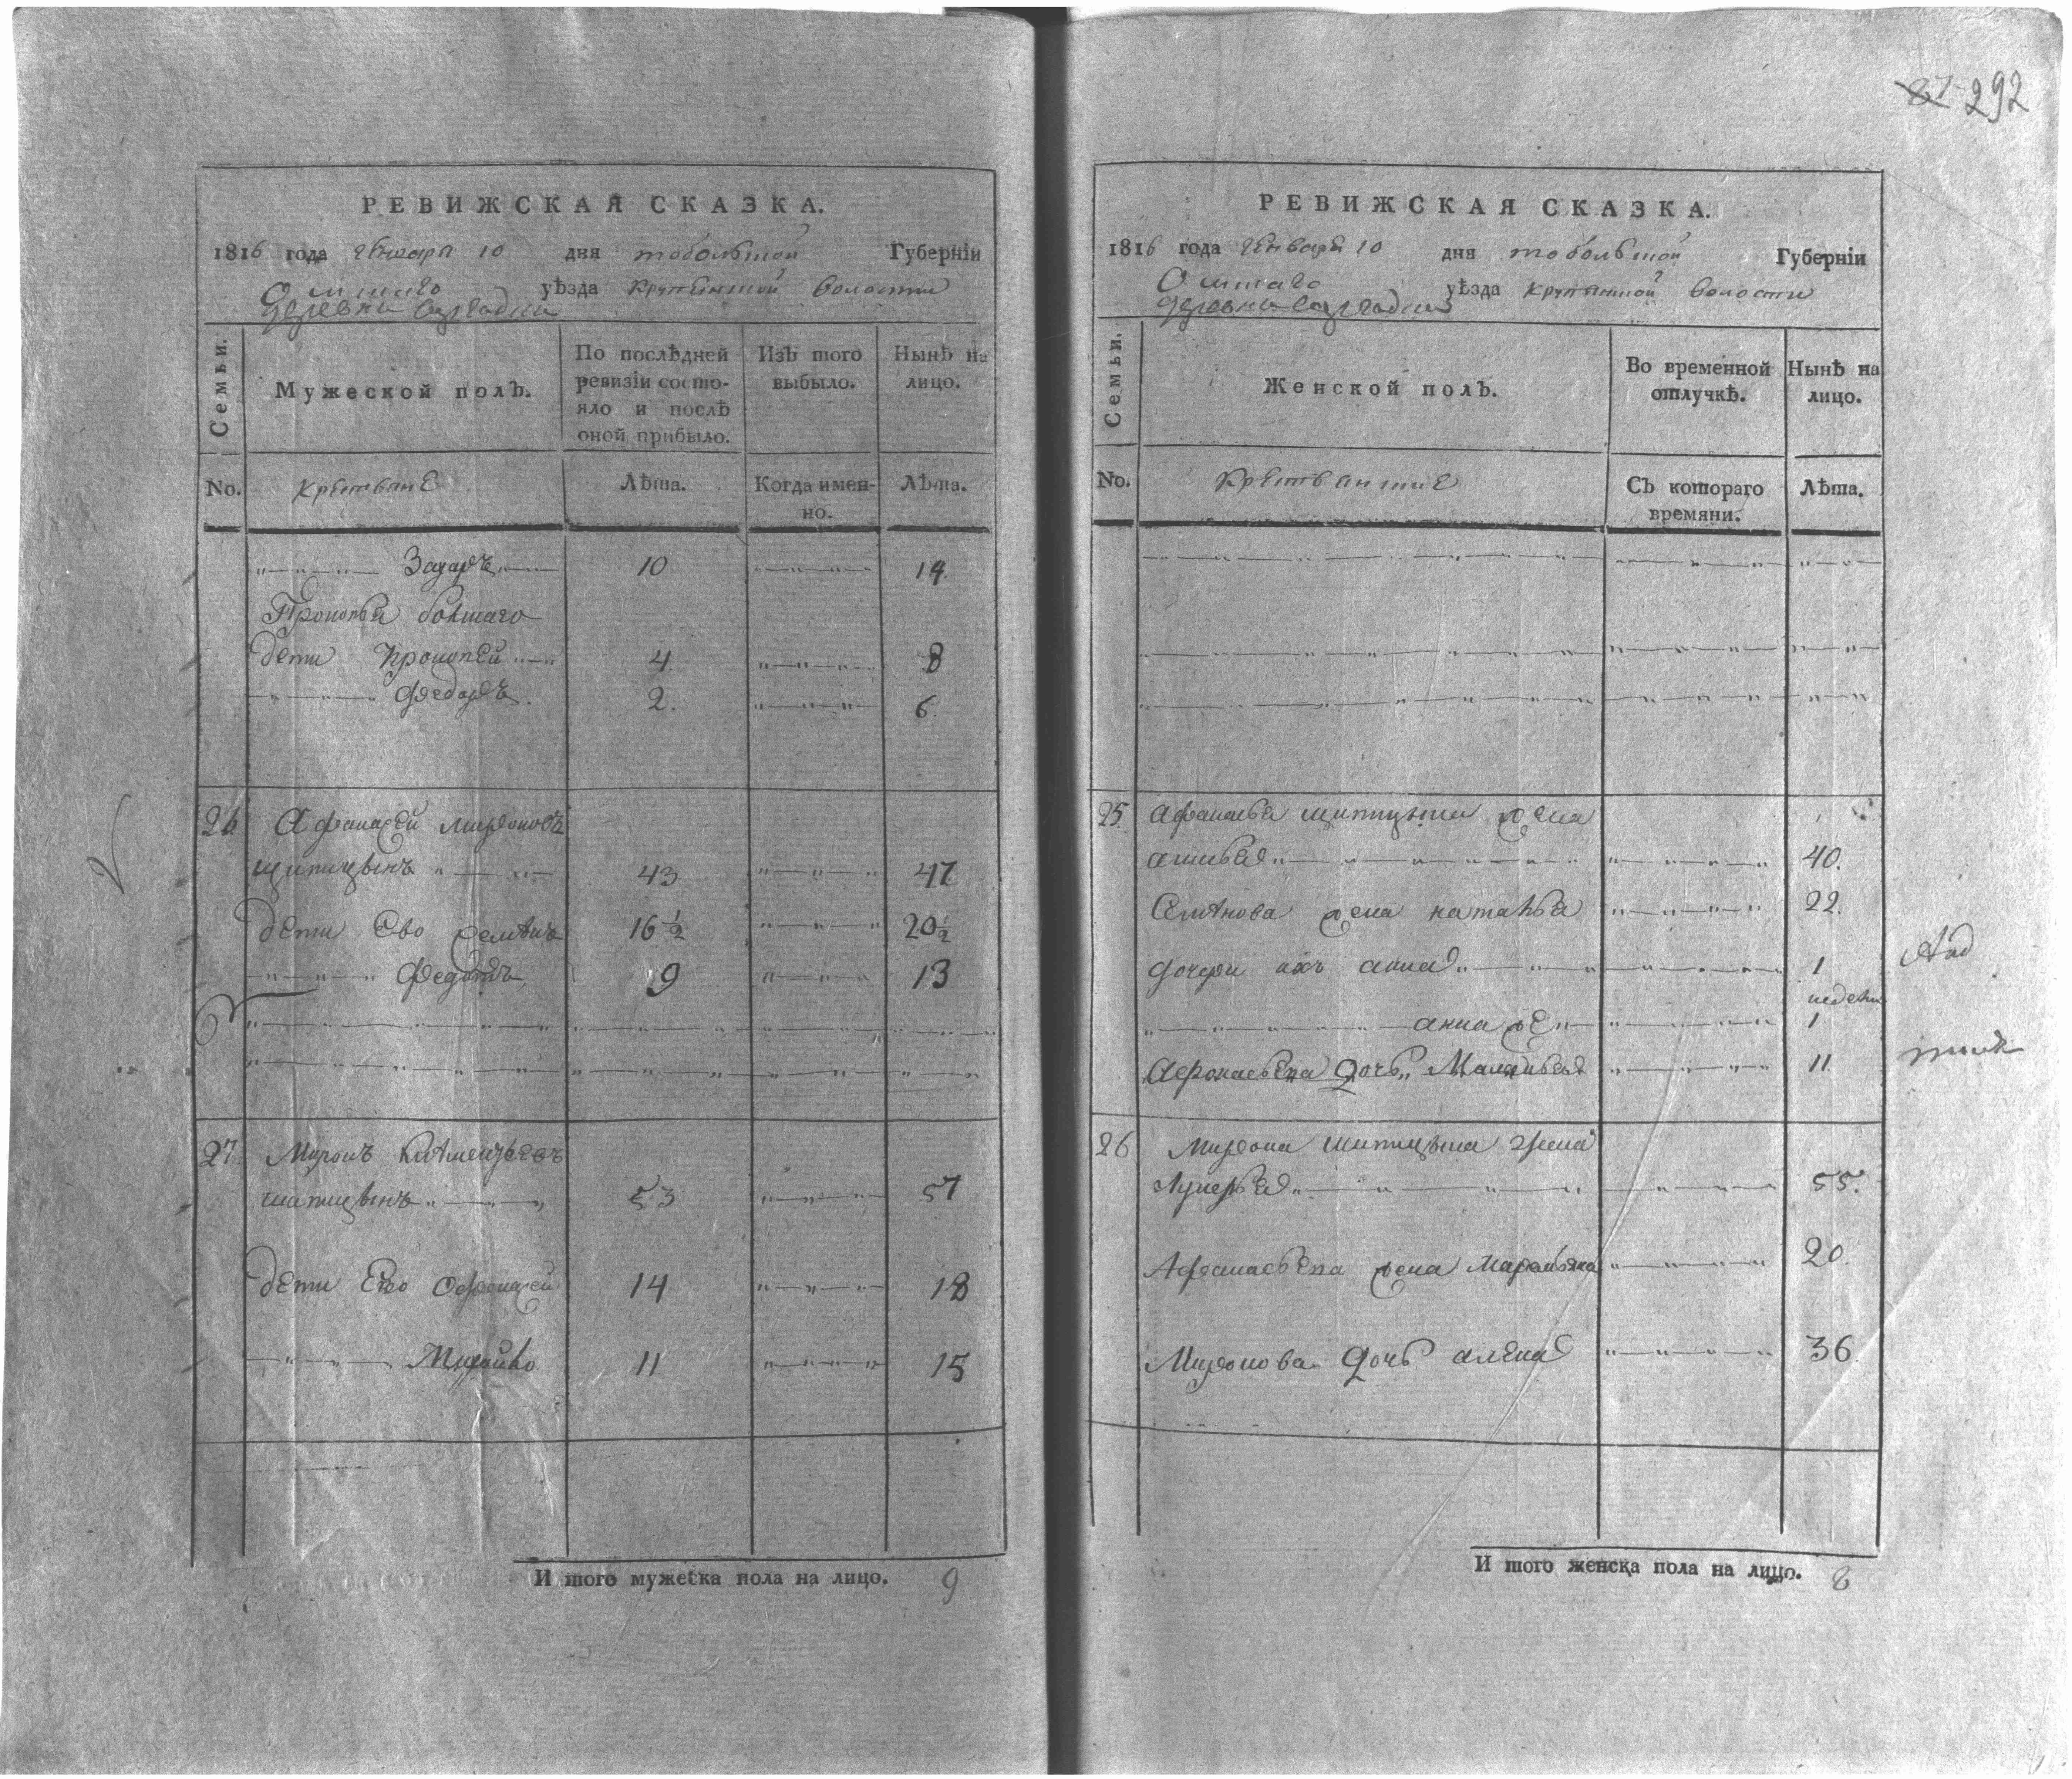 292
РЕВИЖСКАЯ СКАЗКА.
1816 года Генваря 10 дня тобольской Губерніи
Омскаго уѣзда крутинской волости
деревни
Семьи.
Мужеской полъ.
По послѣдней ревизіи состояло и послѣ оной прибыло.
Изъ того выбыло.
Нынѣ на лицо.
No.
крестьяне
Лѣта.
Когда имен-
но.
Лѣта.
Захаръ 10 14
Прокопья болшаго
дети Прокопей 4 8
Федоръ 2. 6
26 Афанасей мироновъ
щипицынъ 43 47
дети Ево семѣнъ 16 1/2 20 1/2
Федотъ 9 13
27 Миронъ
шипицынъ 53 57
дети Ево Офонасей 14 18
Михайло 11 15
И того мужеска пола на лицо. 9
РЕВИЖСКАЯ СКАЗКА.
1816 года Генваря 10 дня тобольской Губерніи
Омскаго уѣзда крутинской волости
деревни
Семьи.
Женской полъ.
Во временной отлучкѣ.
Нынѣ на лицо.
No.
Крестьянские
Съ котораго
времяни.
Лѣта.
25 Афанасья щипицына жена
40.
Семѣнова жена наталья 22.
дочери ихъ анна 1
недели
анна же 1
Афонасьева дочь Маланья 11
26 Мирона шипицына жена
Лукерья 55.
Афанасьева жена 20
Миронова дочь алена 36
И того женска пола на лицо. 8